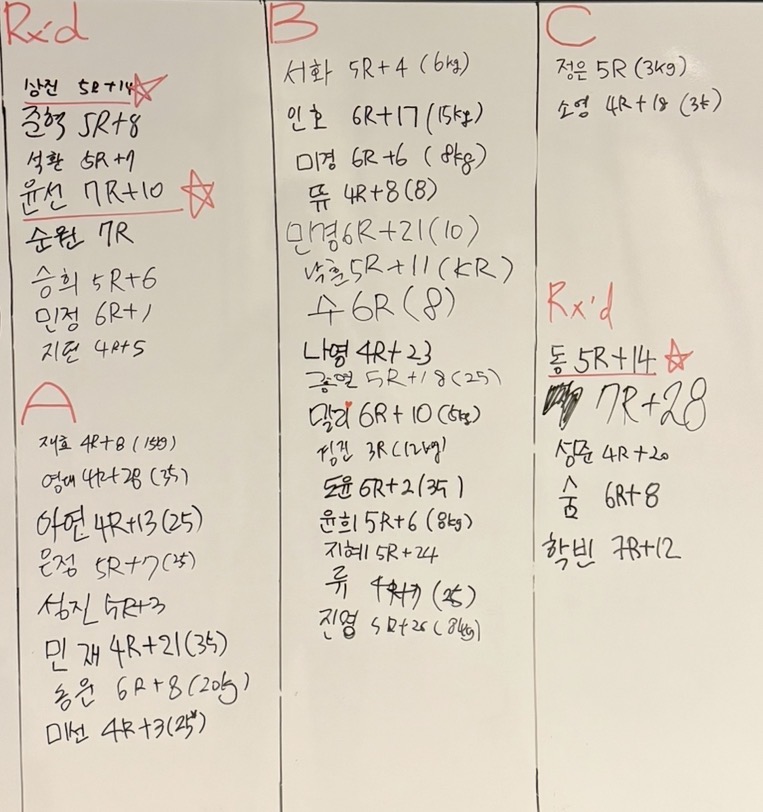 Rx'd
상진 5R+14
준혁 5R+8
석환 5R+7
윤선 7R+10
순원 7R
승희 5R+6
민정 6R+1
지현 4R+5
A
재호 4R+8 (15kg)
영대 4R+28 (35)
아연 4R+13 (25)
은정 5R+7 (25)
성진 5R+3
민재 4R+21 (35)
송윤 6R+8 (20kg)
미선 4R+3 (25#)
B
서화 5R+4 (6kg)
인호 6R+17 (15kg)
미경 6R+6 (8kg)
쮸 4R+8 (8)
민경 6R+21 (10)
낙훈 5R+11 (KR)
수 6R (8)
나영 4R+23
5R+18 (25)
말리 6R+10 (5kg)
3R (12kg)
도윤 6R+2 (35)
윤희 5R+6 (8kg)
지혜 5R+24
류 (25)
진영 5R+25 (8kg)
C
정은 5R (3kg)
소영 4R+18 (3k)
Rx'd
동 5R+14
7R+28
성준 4R+20
숨 6R+8
학빈 7R+12